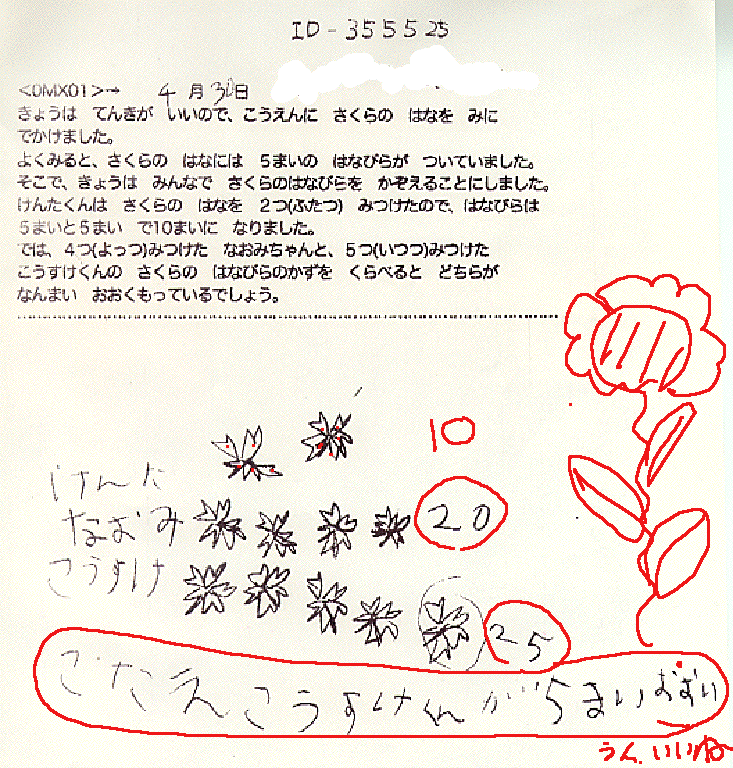 ID-355525
<OMX01>→ 4月30日
きょうは てんきが いいので、こうえんに さくらの はなを みに
でかけました。
よくみると、さくらの はなには 5まいの はなびらが ついていました。
そこで、きょうは みんなで さくらのはなびらを かぞえることにしました。
けんたくんは さくらの はなを 2つ(ふたつ) みつけたので、はなびらは
5まいと5まい で10まいに なりました。
では、4つ(よっつ)みつけた なおみちゃんと、5つ(いつつ)みつけた
こうすけくんの さくらの はなびらのかずを くらべると どちらが
なんまい おおくもっているでしょう。
10
けんた
なおみ 20
こうすけ 25
こたえこうすけくんが5まいおおい
うん、いいね